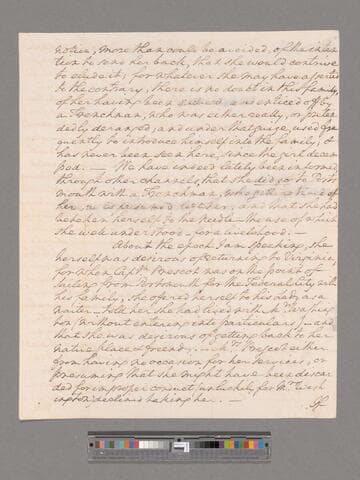 notice, more than could be avoided, of the inten
tion to send her back, that she would contrive
to elude it; for whatever she may have asserted
to the contrary, there is no doubt in this family,
of her having been seduced and enticed off by
a Frenchman, who was either really, or preten
dedly deranged, and under that guise, used fre
quently to introduce himself into the family; &
has never been seen here, since the girl decam
ped. — We have indeed lately been informed
through other channels, that she did go to Ports
mouth with a Frenchman, who getting tired of
her, as is presumed, left her; and that she had
betaken herself to the needle — the use of which
she well understood — for a livelihood. —
About the epoch I am speaking, she
herself was desirous of returning to Virginia,
for when Captn Prescot was on the point of
sailing from Portsmouth for the Federal City with
his family, she offered herself to his lady as a
waiter — told her she had lived with Mrs Washing
ton (without entering into particulars), and
that she was desirous of getting back to her
native place & friends. Mrs Prescot either
from having no occasion for her services, or
presuming that she might have been discar
ded for improper conduct, unluckily for Mrs Wash
ington declined taking her. —
If